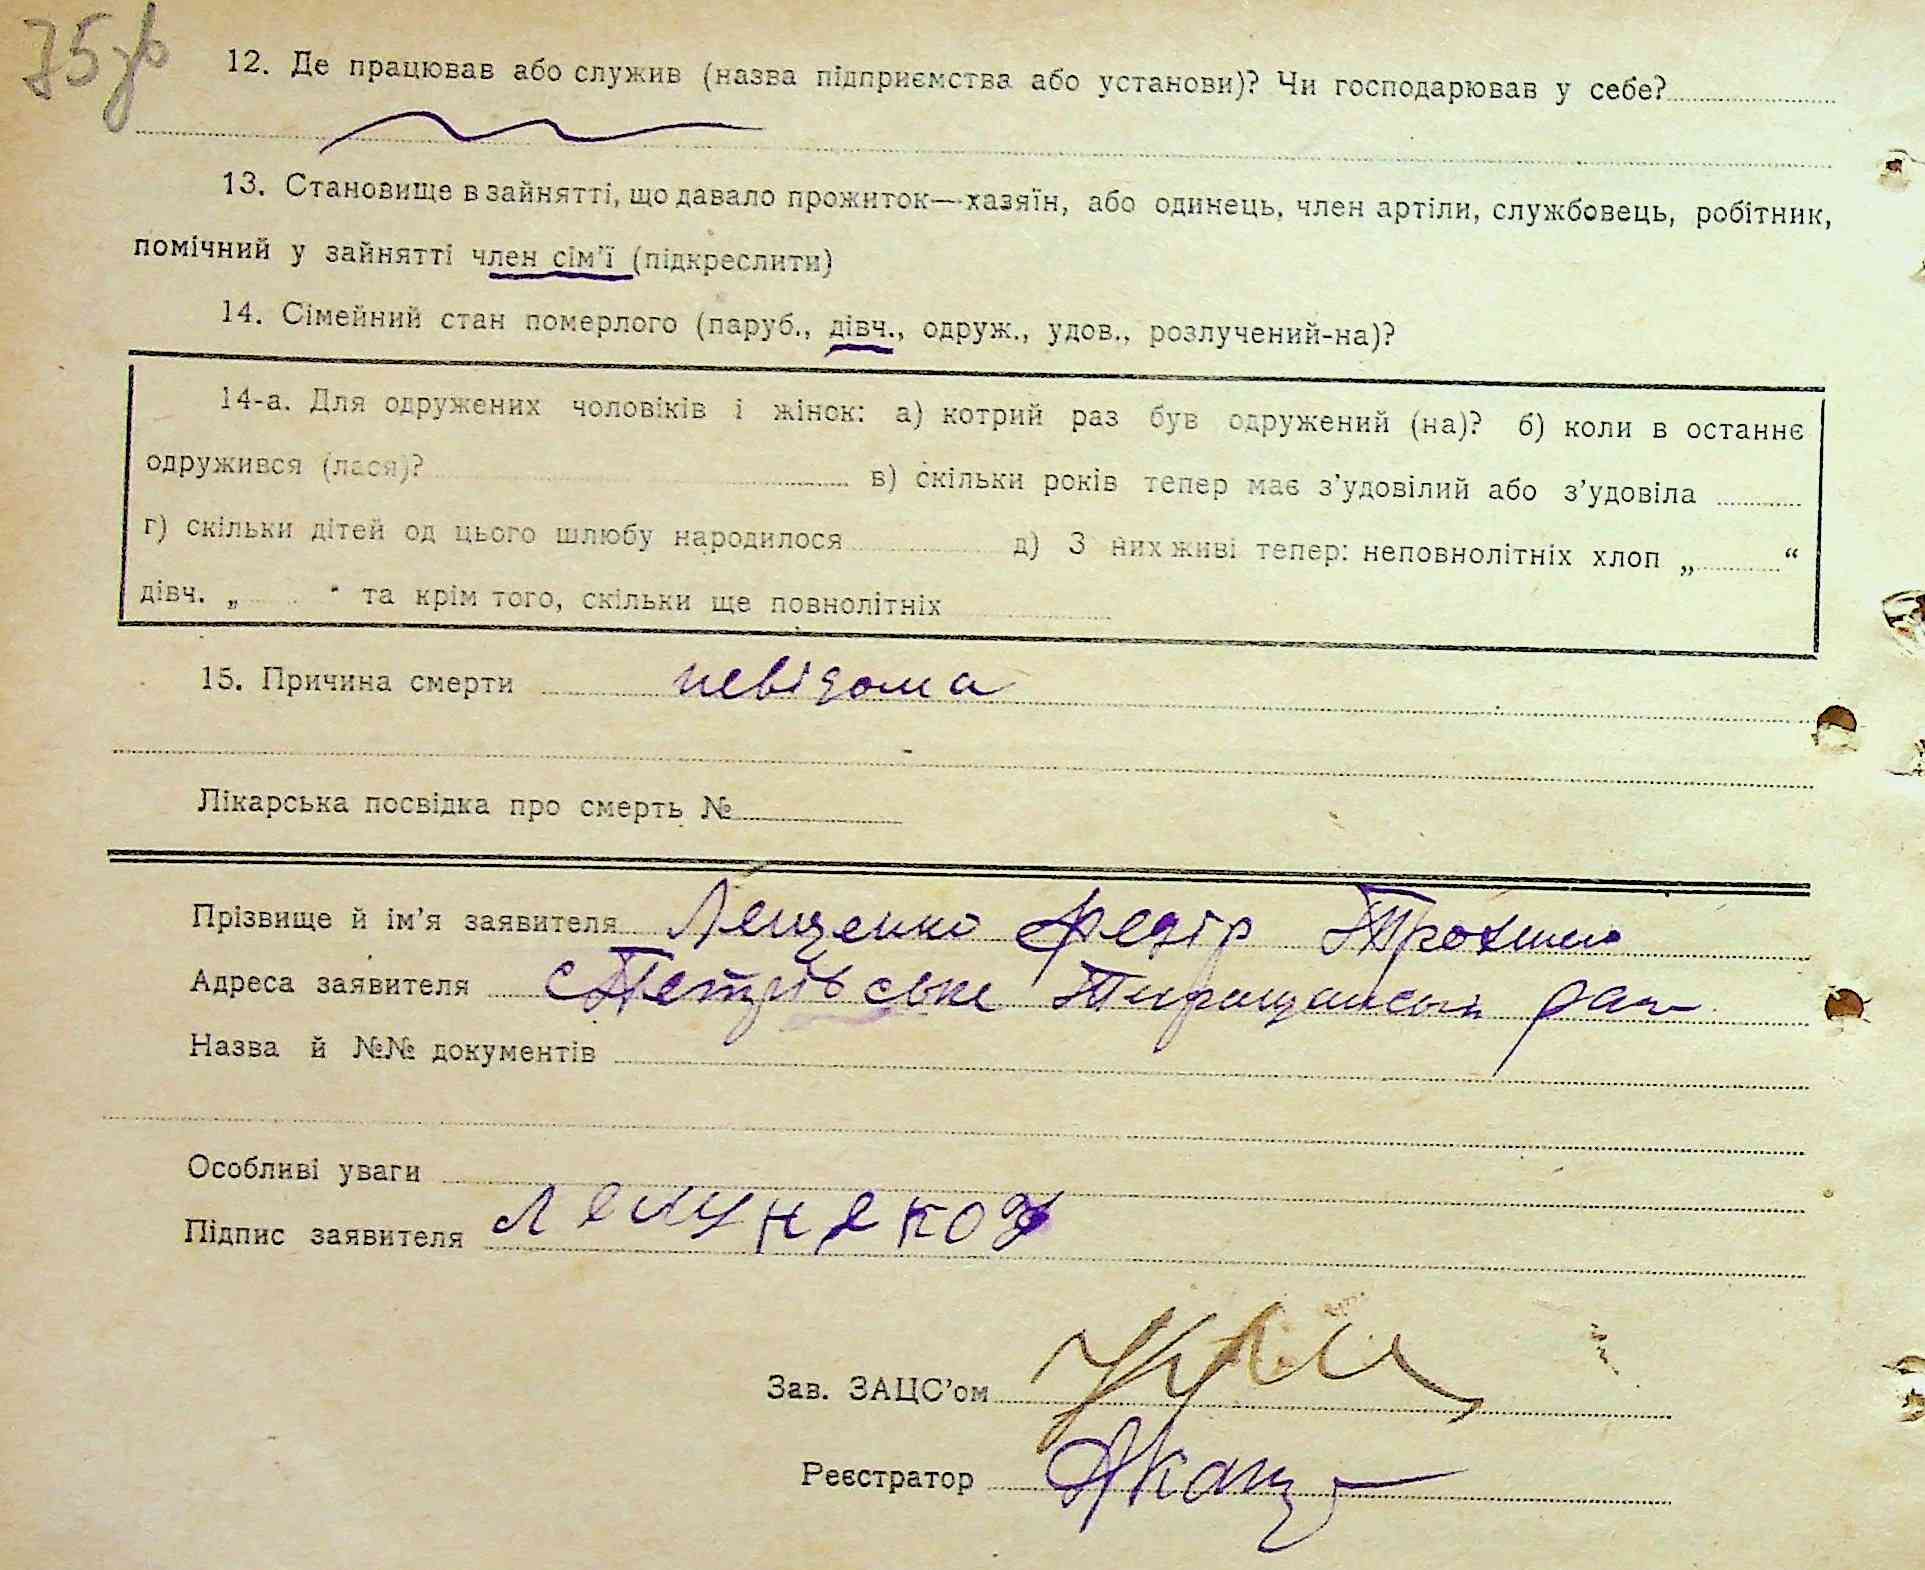 75 зв
12. Де працював або служив (назва підприємства або установи)? Чи господарював у себе?
13. Становище в зайнятті, що давало прожиток—хазяїн, або одинець, член артіли, службовець, робітник,
помічний у зайнятті член сім'ї (підкреслити)
14. Сімейний стан померлого (паруб., дівч., одруж., удов., розлучений-на)?
14-а. Для одружених чоловіків і жінок: а) котрий раз був одружений (на)? б) коли в останнє
одружився (лася)? в) скільки років тепер має з'удовілий або з'удовіла
г) скільки дітей од цього шлюбу народилося д) З них живі тепер: неповнолітніх хлоп „ “
дівч. „ “ та крім того, скільки ще повнолітніх
15. Причина смерти невідома
Лікарська посвідка про смерть №
Прізвище й ім'я заявителя Лещенко Федір
Адреса заявителя с Петрівське
Назва й №№ документів
Особливі уваги
Підпис заявителя
Зав. ЗАЦС'ом
Реєстратор